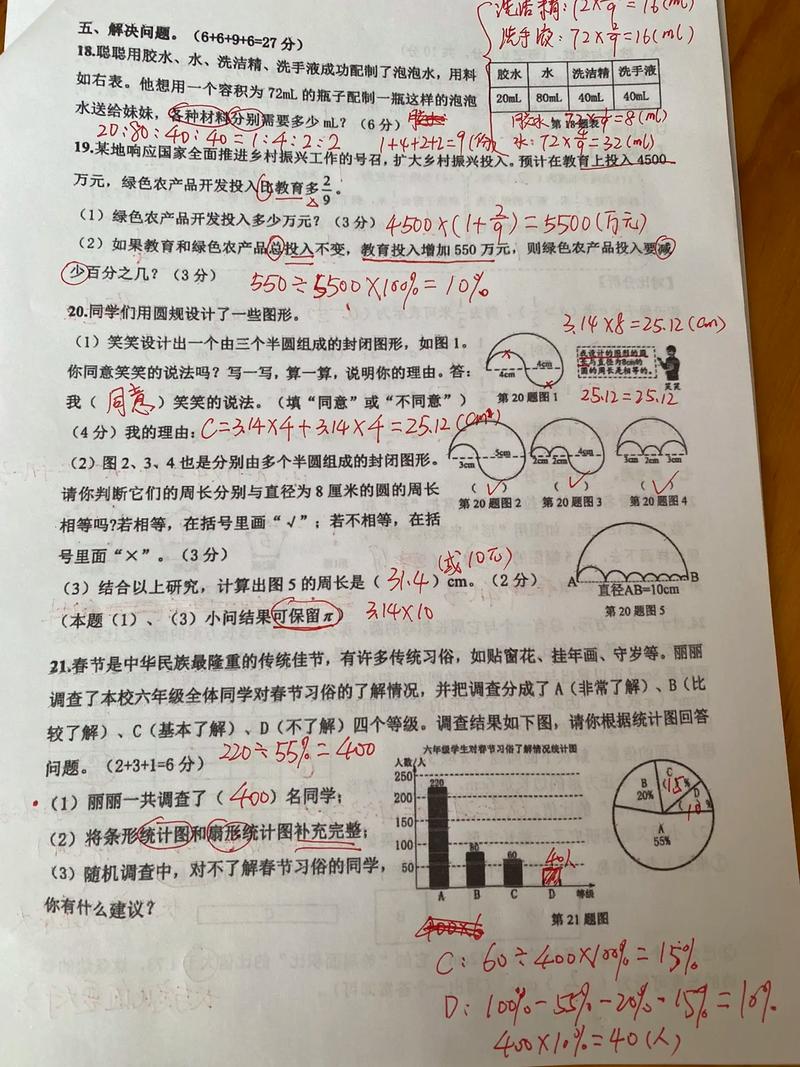 洗洁精：72×2/9=16(ml)
五、解决问题。（6+6+9+6=27 分）
洗手液：72×2/9=16(ml)
18.聪聪用胶水、水、洗洁精、洗手液成功配制了泡泡水，用料
如右表。他想用一个容积为 72mL 的瓶子配制一瓶这样的泡泡
水送给妹妹，各种材料分别需要多少 mL？（6 分）
胶水 水 洗洁精 洗手液
20mL 80mL 40mL 40mL
第 18 题表
胶水 72×1/9=8(ml)
20:80:40:40=1:4:2:2
1+4+2+2=9(份)
水：72×4/9=32(ml)
19.某地响应国家全面推进乡村振兴工作的号召，扩大乡村振兴投入。预计在教育上投入 4500
万元，绿色农产品开发投入比教育多2/9。
（1）绿色农产品开发投入多少万元？（3 分）
4500×(1+2/9)=5500(万元)
（2）如果教育和绿色农产品总投入不变，教育投入增加 550 万元，则绿色农产品投入要减
少百分之几？（3 分）
550÷5500×100%=10%
20.同学们用圆规设计了一些图形。
3.14×8=25.12(cm)
（1）笑笑设计出一个由三个半圆组成的封闭图形，如图 1。
你同意笑笑的说法吗？写一写，算一算，说明你的理由。答：
我（同意）笑笑的说法。（填“同意”或“不同意”）
（4 分）我的理由：C=3.14×4+3.14×4=25.12(cm)
4cm 4cm
第 20 题图 1
我设计的图形的周
长与直径为8cm的
圆的周长是相等的。
笑笑
25.12=25.12
（2）图 2、3、4 也是分别由多个半圆组成的封闭图形。
请你判断它们的周长分别与直径为 8 厘米的圆的周长
相等吗?若相等，在括号里画“√”；若不相等，在括
号里面“×”。（3 分）
3cm 5cm
2cm 2cm 4cm
3cm 2cm 3cm
（√） （√） （√）
第 20 题图 2 第 20 题图 3 第 20 题图 4
(或10π)
（3）结合以上研究，计算出图 5 的周长是（31.4）cm。（2 分）
（本题（1）、（3）小问结果可保留π）
3.14×10
A B
直径AB=10cm
第 20 题图 5
21.春节是中华民族最隆重的传统佳节，有许多传统习俗，如贴窗花、挂年画、守岁等。丽丽
调查了本校六年级全体同学对春节习俗的了解情况，并把调查分成了 A（非常了解）、B（比
较了解）、C（基本了解）、D（不了解）四个等级。调查结果如下图，请你根据统计图回答
问题。（2+3+1=6 分）
220÷55%=400
（1）丽丽一共调查了（400）名同学；
（2）将条形统计图和扇形统计图补充完整；
（3）随机调查中，对不了解春节习俗的同学，
你有什么建议？
六年级学生对春节习俗了解情况统计图
人数/人
250
200
150
100
50
220
80
60
40人
A B C D 等级
B
20%
C
(15%)
D
(10%)
A
55%
第 21 题图
C：60÷400×100%=15%
D：100%-55%-20%-15%=10%
400×10%=40(人)